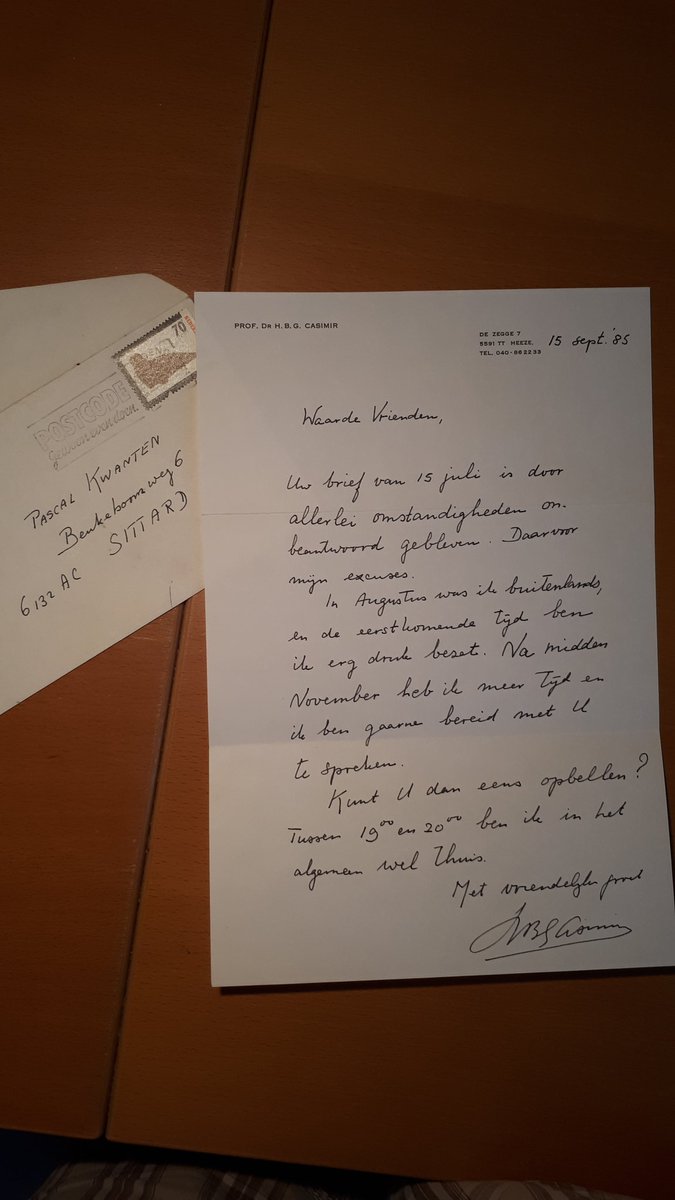 PROF. DR H. B. G. CASIMIR
DE ZEGGE 7
5591 TT HEEZE,
TEL. 040-862233
15 sept. '85
Waarde Vrienden,
Uw brief van 15 juli is door
allerlei omstandigheden on-
beantwoord gebleven. Daarvoor
mijn excuses.
In Augustus was ik buitenlands,
en de eerstkomende tijd ben
ik erg druk bezet. Na midden
November heb ik meer tijd en
ik ben gaarne bereid met U
te spreken.
Kunt U dan eens opbellen?
Tussen 19⁰⁰ en 20⁰⁰ ben ik in het
algemeen wel thuis.
Met vriendelijke groet
HBG Casimir
70
POSTCODE
Gewoon even doen.
PASCAL KWANTEN
Beukeboomsweg 6
6132 AC SITTARD